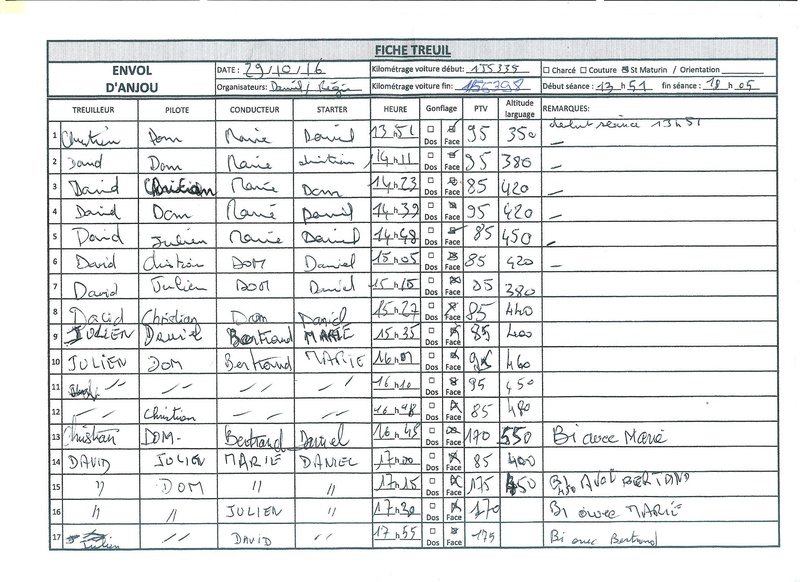 FICHE TREUIL
ENVOL D'ANJOU
DATE : 29/10/16 Kilométrage voiture début: 155339 ☐ Charcé ☐ Couture ☒ St Maturin / Orientation
Organisateurs: Daniel / Régis Kilométrage voiture fin: 155398 Début séance : 13 h 51 fin séance : 18 h 05
TREUILLEUR PILOTE CONDUCTEUR STARTER HEURE Gonflage PTV Altitude larguage REMARQUES:
1 Christian Dom Marie Daniel 13 h 51 ☐ Dos ☒ Face 95 350 début séance 13h51
2 David Dom Marie christian 14 h 11 ☐ Dos ☒ Face 95 380 _
3 David Christian Marie Dom 14 h 23 ☐ Dos ☒ Face 85 420 _
4 David Dom Marie Daniel 14 h 39 ☐ Dos ☒ Face 95 420 _
5 David Julien Marie Daniel 14 h 48 ☐ Dos ☒ Face 85 450 _
6 David Christian DOM Daniel 15 h 05 ☐ Dos ☒ Face 85 420 _
7 David Julien DOM Daniel 15 h 15 ☐ Dos ☒ Face 85 380
8 David Christian Dom Daniel 15 h 27 ☐ Dos ☒ Face 85 440
9 JULIEN Daniel Bertrand MARIE 15 h 35 ☐ Dos ☒ Face 85 400
10 JULIEN DOM Bertrand MARIE 16 h 01 ☐ Dos ☒ Face 95 460
11 // // // // 16 h 10 ☐ Dos ☒ Face 95 450
12 // Christian // // 16 h ☐ Dos ☒ Face 85 480
13 Christian DOM- Bertrand Daniel 16 h 45 ☐ Dos ☒ Face 170 550 Bi avec Marie
14 DAVID JULIEN MARIE DANIEL 17 h 00 ☐ Dos ☒ Face 85 400
15 // DOM // // 17 h 15 ☐ Dos ☒ Face 175 450 AVEC BERTRAND
16 // // JULIEN // 17 h 30 ☐ Dos ☒ Face 170 Bi avec MARIE
17 Julien // DAVID // 17 h 55 ☐ Dos ☒ Face 175 Bi avec Bertrand